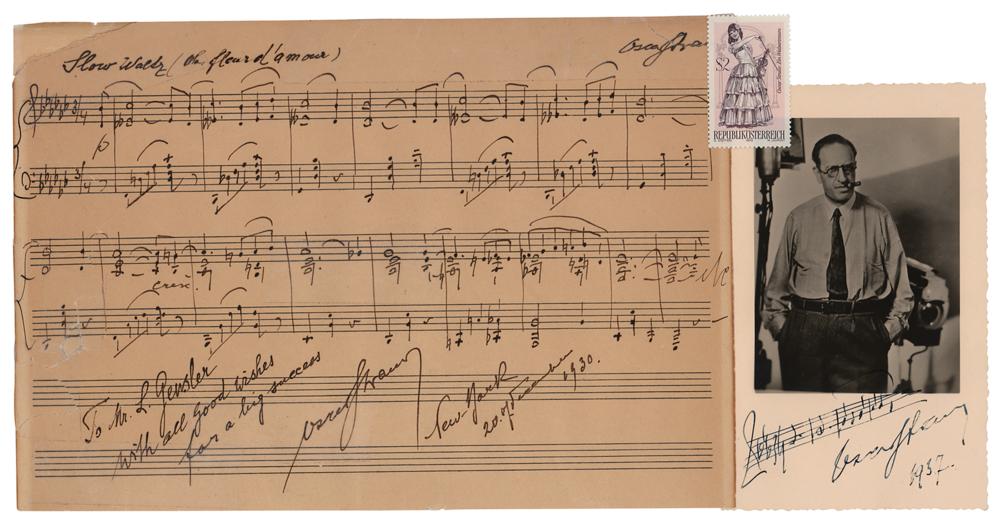 Slow Waltz (Oh, fleur d'amour)
Oscar Straus
S2
Oscar Straus: Ein Walzertraum
REPUBLIK ÖSTERREICH
p
cresc.
etc
To Mr. L. Gensler
with all good wishes
for a big success
Oscar Straus
New-York
1930.
Oscar Straus
1937.